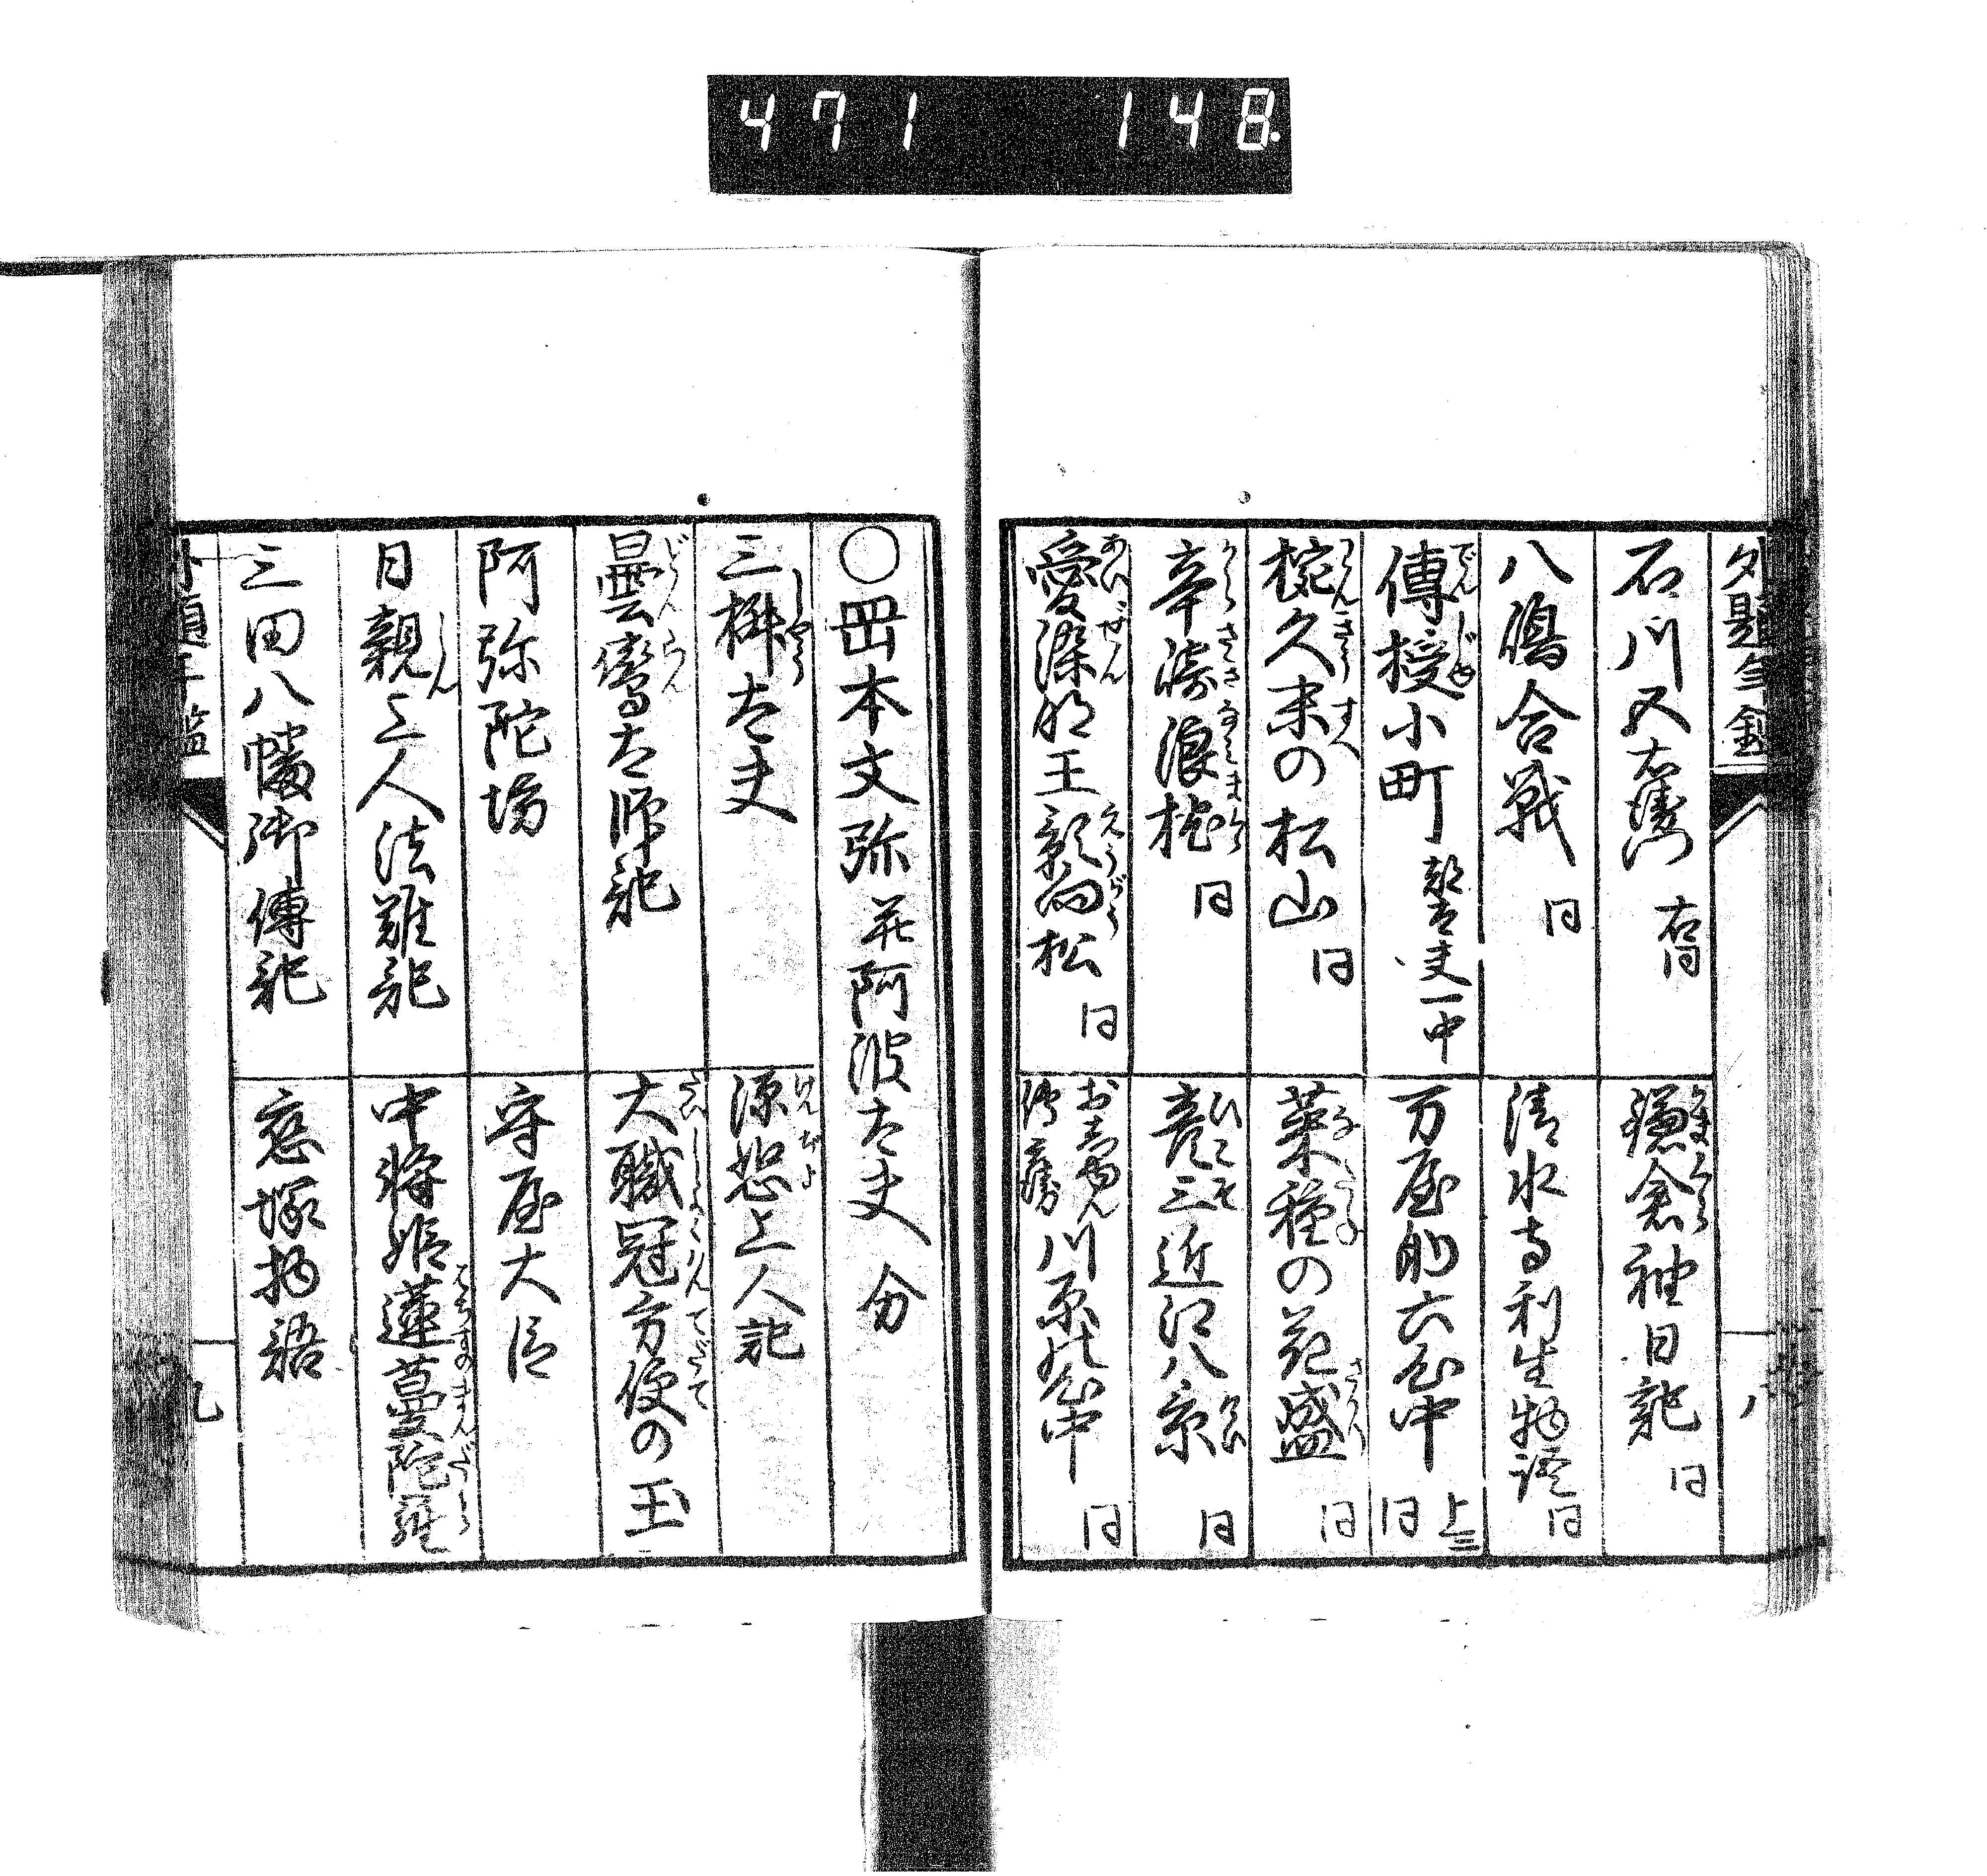 471 148
外題年鑑
石川五右衛門 右同
鎌倉袖日記 同
八嶋合戦 同
清水寺利生物語 同
傳授小町 都太夫一中
万屋助六心中 上三 同
椀久末の松山 同
菜種の花盛 同
辛崎浪枕 同
彦三近江八景 同
愛染明王影向松 同
川原心中 同
八
〇岡本文弥 并阿波太夫 分
三椒太夫
源恕上人記
曇鸞大師記
大職冠方便の玉
阿弥陀坊
守屋大臣
日親上人法難記
中将姫蓮蔓陀羅
三田八幡御傳記
恋塚物語
九